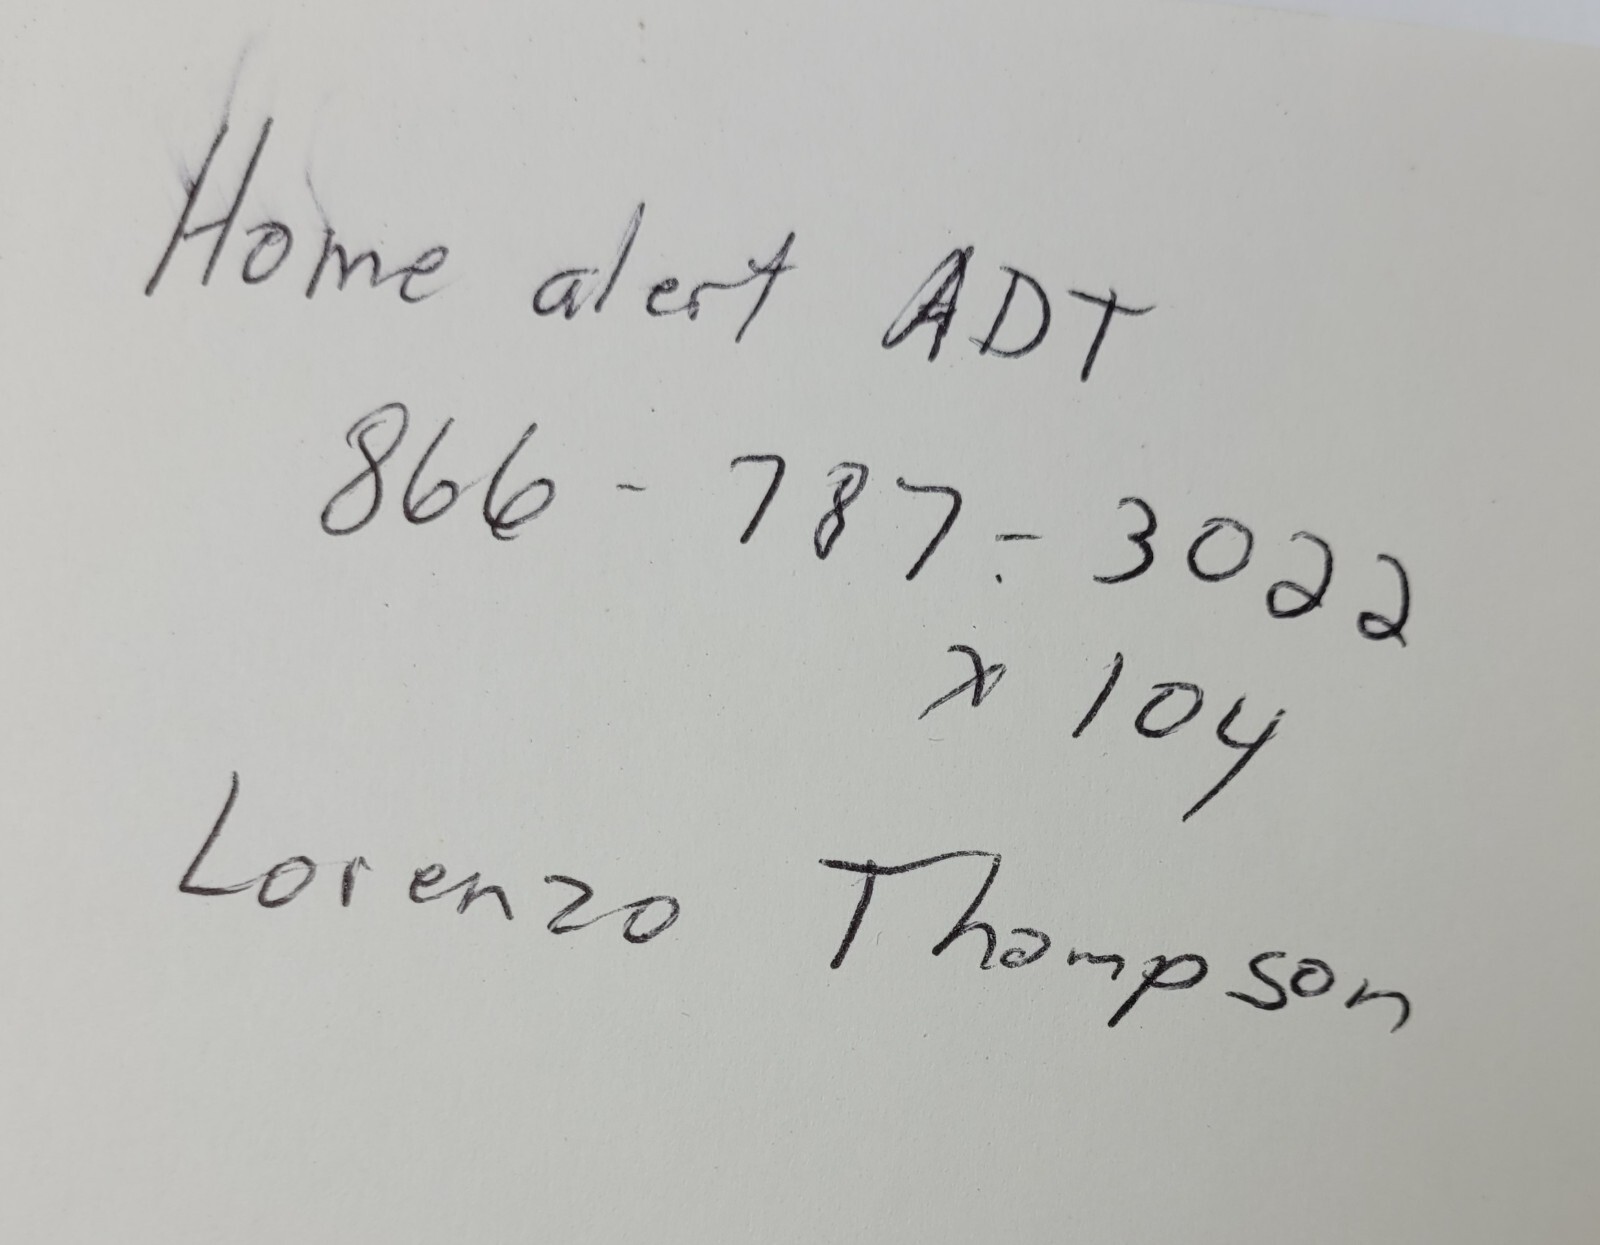 Home alert ADT
866 - 787 - 3022
x 104
Lorenzo Thompson